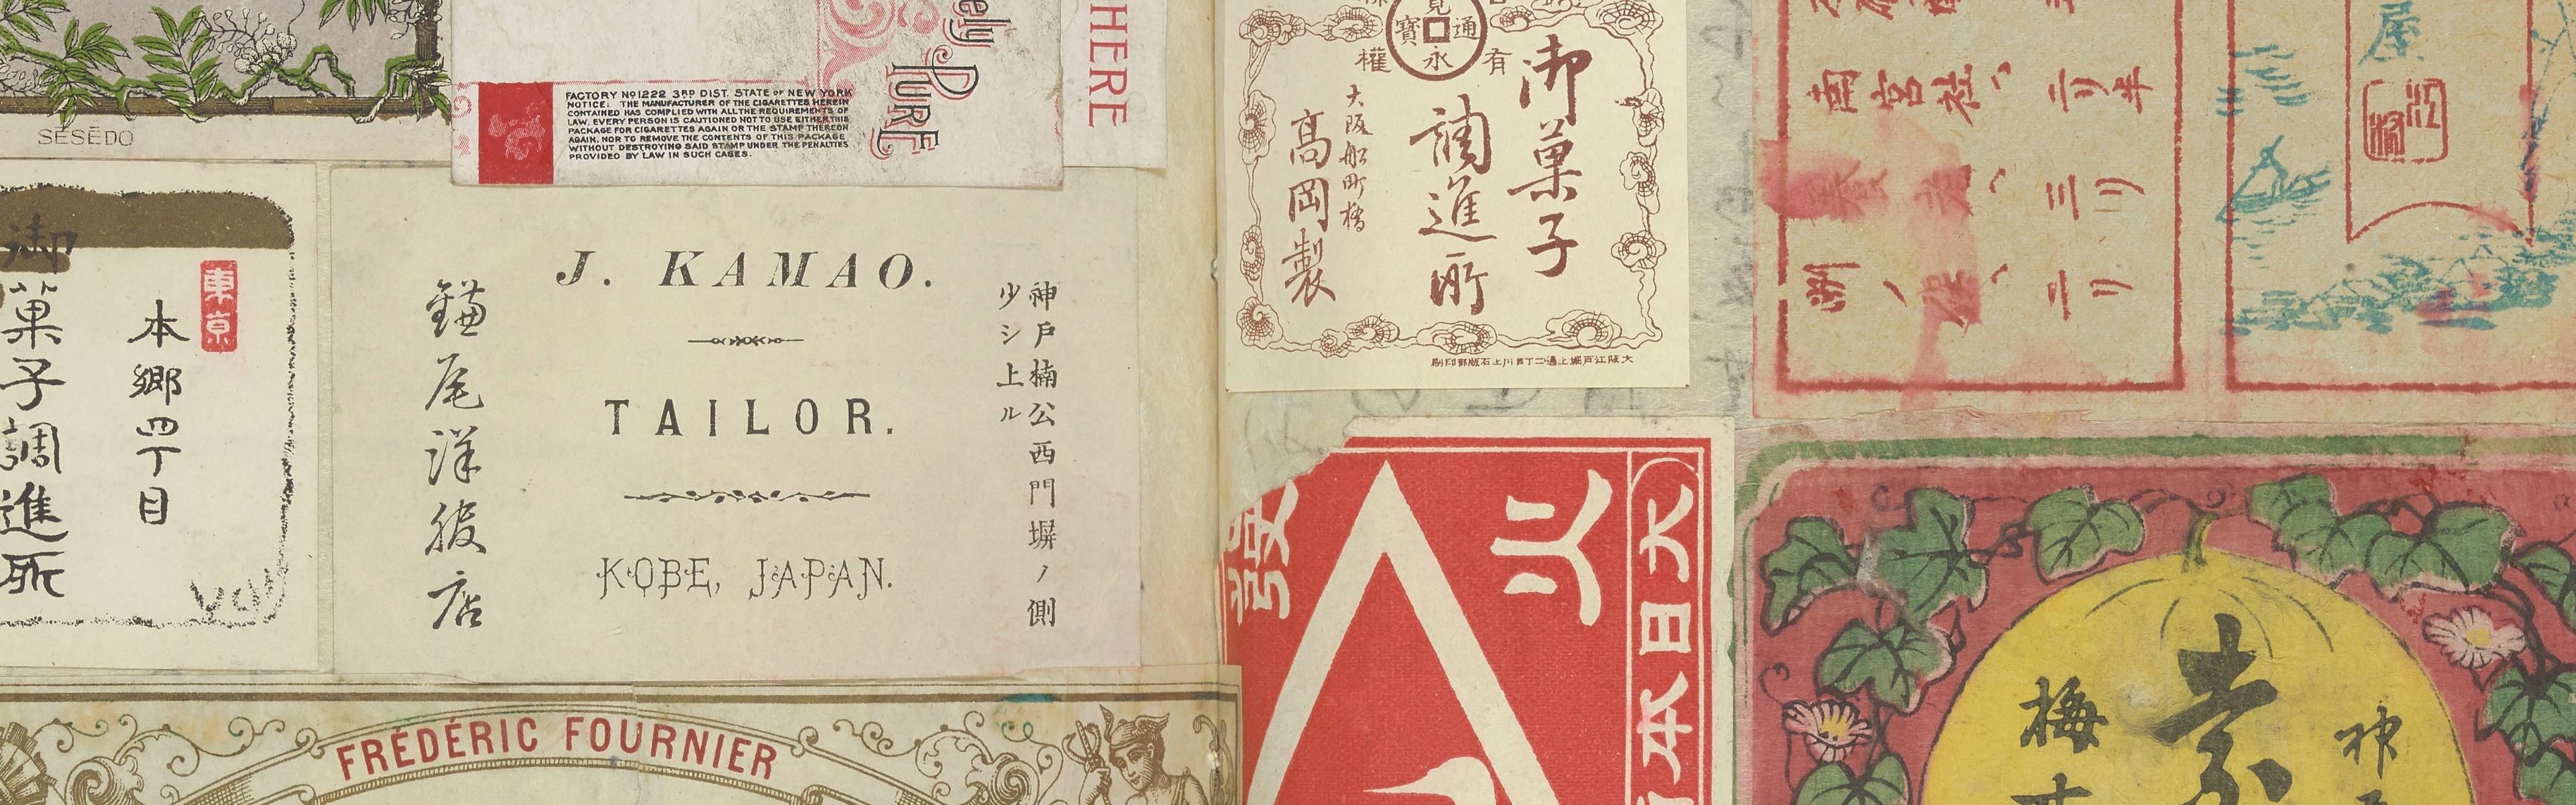 SESĒDO
FACTORY Nº1222 3RD DIST. STATE OF NEW YORK
NOTICE: THE MANUFACTURER OF THE CIGARETTES HEREIN
CONTAINED HAS COMPLIED WITH ALL THE REQUIREMENTS OF
LAW. EVERY PERSON IS CAUTIONED NOT TO USE EITHER THIS
PACKAGE FOR CIGARETTES AGAIN OR THE STAMP THEREON
AGAIN, NOR TO REMOVE THE CONTENTS OF THIS PACKAGE
WITHOUT DESTROYING SAID STAMP UNDER THE PENALTIES
PROVIDED BY LAW IN SUCH CASES.
PURE
HERE
東京
本郷四丁目
御菓子調進所
J. KAMAO.
TAILOR.
KOBE, JAPAN.
神戸楠公西門塀ノ側
少シ上ル
鎌尾洋服店
FRÉDÉRIC FOURNIER
寛永通寳
有
權
御菓子
調進所
大阪船町橋
高岡製
大阪江戸堀上通二丁目川上石版部印刷
火
大日本
屋
南宮社へ 二リ半
三リ
二リ
梅